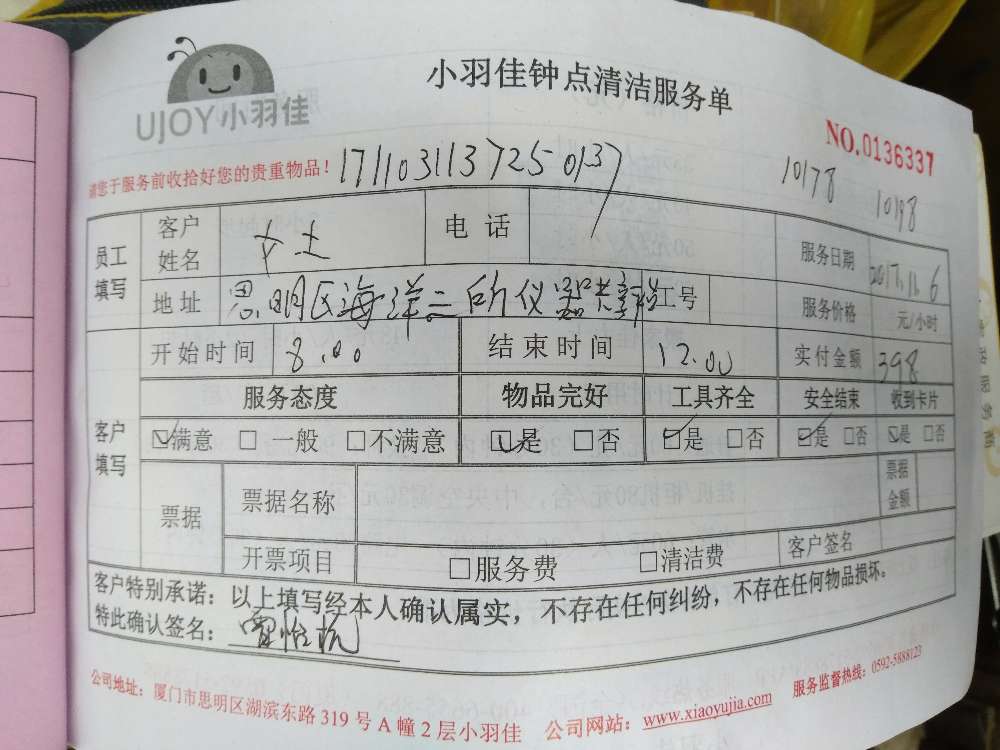 UJOY小羽佳
小羽佳钟点清洁服务单
NO.0136337
请您于服务前收拾好您的贵重物品!
171103113725 0137
10178
10198
员工填写
客户姓名 女士 电话 服务日期 2017.11.6
地址 思明区海洋三所仪器共享 工号 服务价格 元/小时
开始时间 8:00 结束时间 12:00 实付金额 398
客户填写
服务态度 物品完好 工具齐全 安全结束 收到卡片
☑满意 □一般 □不满意 ☑是 □否 ☑是 □否 ☑是 □否 ☑是 □否
票据 票据名称 票据金额
开票项目 □服务费 □清洁费 客户签名
客户特别承诺:以上填写经本人确认属实,不存在任何纠纷,不存在任何物品损坏。
特此确认签名:
公司地址:厦门市思明区湖滨东路319号A幢2层小羽佳 公司网站:www.xiaoyujia.com 服务监督热线:0592-5888123